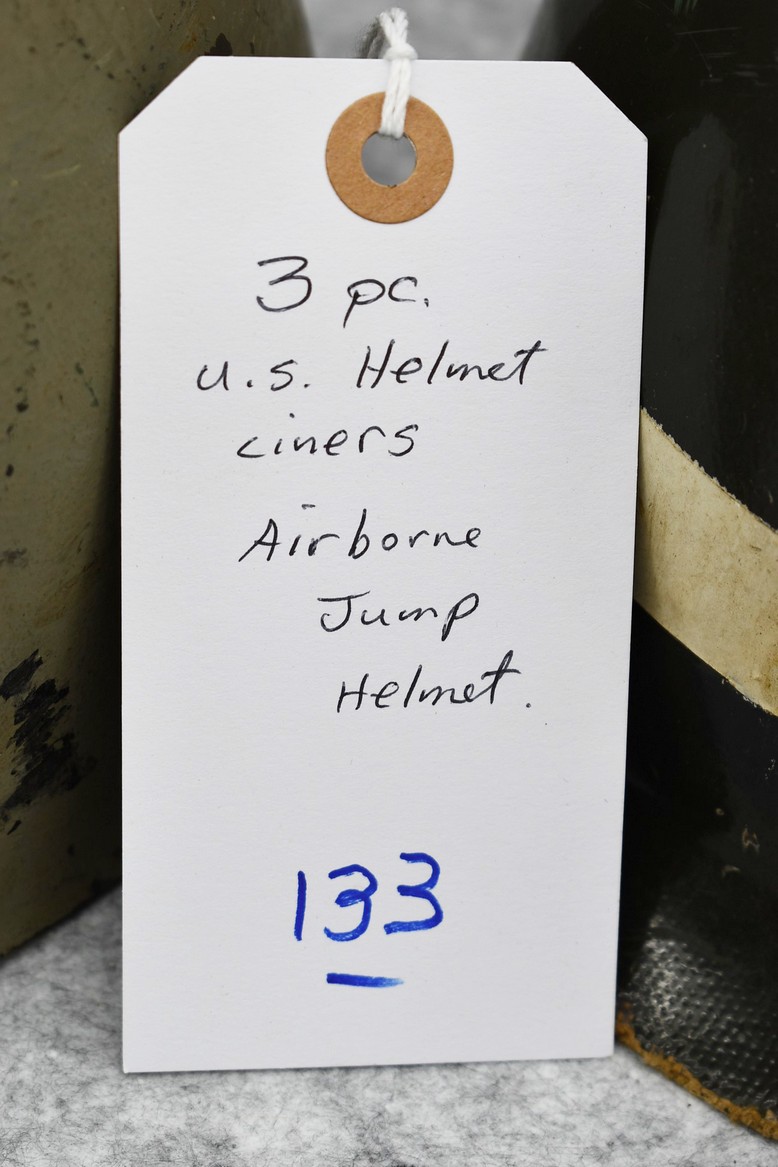 3 pc.
U.S. Helmet
Liners
Airborne
Jump
Helmet.
133